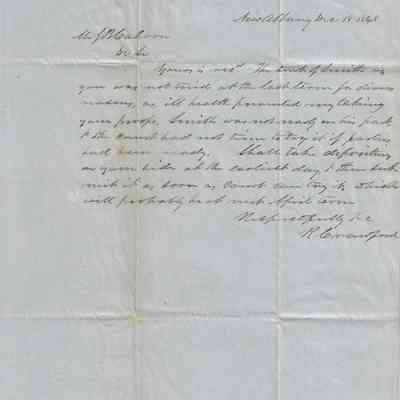 New Albany Dec 18 1848
Mr J B Calvon
Dr Sir
Yours is recd. The trial of Smith vs
you was not tried at the last term for divers
reasons, as ill health prevented my taking
your proofs, Smith was not ready on his part
& the Court had not time to try it if parties
had been ready. Shall take depositions
on your side at the earliest day & then
it as soon as Court can try it, which
will probably be at next April term
Respectfully &c
R Crawford